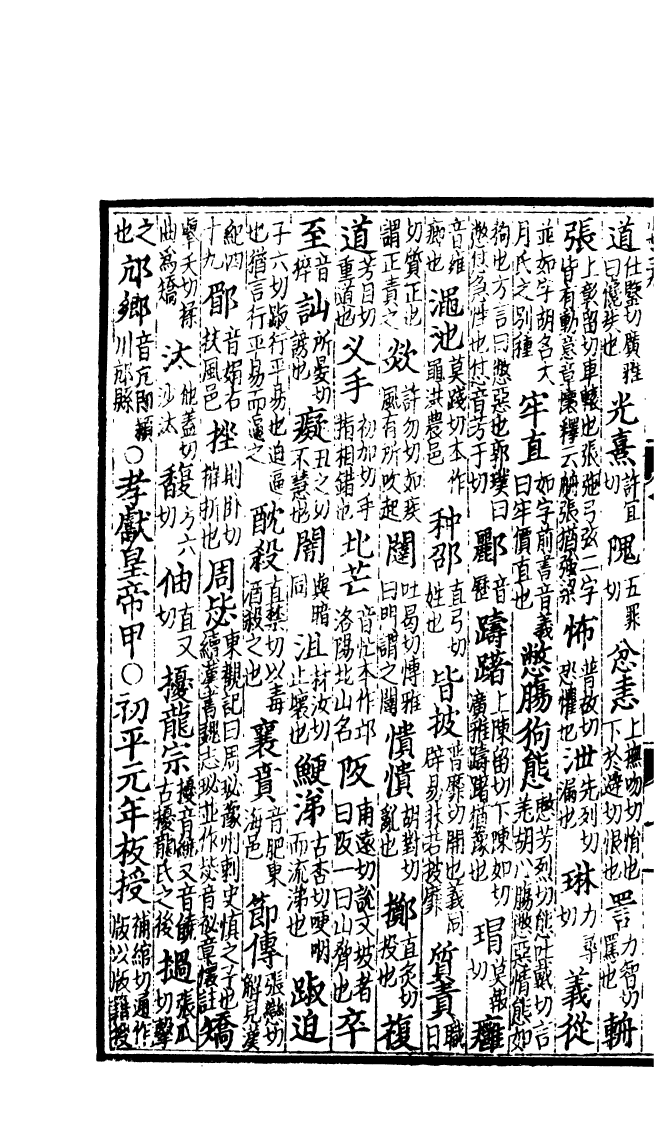 道仕鑒切廣雅曰儳疾也光熹許宜切隗五罪切忿恚上撫吻切悁也下於避切恨也詈力智切罵也輈
張上彰留切車轅也張弛弓弦二字皆有動意章懷釋云輈張猶彊梁怖普故切恐懼也泄先列切漏也琳力尋切義從
並如字胡名大月氏之別種牢直如字前書音義曰牢價直也憋腸狗態憋芳列切態他戴切言羌胡心腸憋惡情態如
狗也方言曰憋惡也郭璞曰憋怤急性也怤音芳于切酈音歷躊躇上陳留切下陳如切廣雅躊躇猶豫也瑁莫報切癰
音雍癤也澠池莫踐切本作黽洪農邑种邵直弓切姓也皆披普靡切開也義同辟易非若披靡質責職日
切質正也謂正責之欻許勿切如疾風有所吹起闥吐曷切博雅曰門謂之闥憒憒胡對切亂也擲直炙切投也複
道芳目切重道也叉手初加切手指相錯也北芒音忙本作邙洛陽北山名阪甫遠切說文坡者曰阪一曰山脅也卒
至音猝訕所晏切謗也癡丑之切不慧也闇與暗同沮材汝切止壞也鯁涕古杏切哽咽而流涕也踧迫
子六切踧行平易也迫逼也猶言行平易而逼之酖殺直禁切以毒酒殺之也襄賁音肥東海邑節傳張戀切解見漢
紀四十九郿音媚右扶風邑挫則卧切摧折也周毖東觀記曰周珌豫州刺史慎之子也續漢書魏志珌並作毖音祕章懷註矯
舉夭切揉曲爲矯汰他蓋切沙汰馥方六切伷直又切擾龍宗擾音繞又音饒古擾龍氏之後撾張瓜切擊
之也邟鄉音亢潁川邟縣○孝獻皇帝甲○初平元年板授補綰切通作版以版籍授